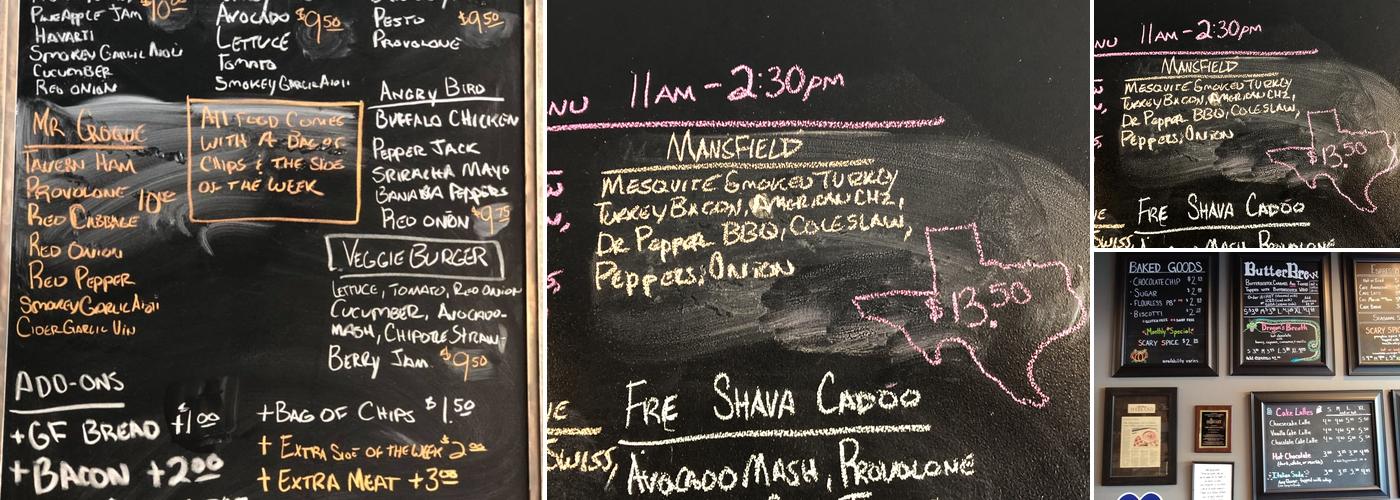 Pineapple Jam
Havarti
Smokey Garlic Aioli
Cucumber
Red Onion
Avocado $9.50
Lettuce
Tomato
Smokey Garlic Aioli
Pesto $9.50
Provolone
Mr Croque
Tavern Ham
Provolone 10.25
Red Cabbage
Red Onion
Red Pepper
Smokey Garlic Aioli
Cider Garlic Vin
All food comes
with a bag of
chips & the side
of the week
Angry Bird
Buffalo Chicken
Pepper Jack
Sriracha Mayo
Banana Peppers
Red Onion $9.75
Veggie Burger
Lettuce, Tomato, Red Onion
Cucumber, Avocado-
Mash, Chipotle Straw-
Berry Jam $9.50
Add-Ons
+GF Bread $1.00
+Bacon +2.00
+Bag of Chips $1.50
+ Extra Side of the Week $2.00
+ Extra Meat +3.00
NU 11am-2:30pm
Mansfield
Mesquite Smoked Turkey
Turkey Bacon, American Chz,
Dr Pepper BBQ, Coleslaw,
Peppers, Onion
$13.50
Fre Shava Cadoo
Swiss,
Avocado Mash, Provolone
NU 11am-2:30pm
Mansfield
Mesquite Smoked Turkey
Turkey Bacon, American Chz,
Dr Pepper BBQ, Coleslaw,
Peppers, Onion
$13.50
Fre Shava Cadoo
Swiss,
Mash Provolone
Baked Goods
Chocolate Chip
Sugar
Flourless PB
Biscotti
Monthly Special
Scary Spice
availability varies
ButterBrew
Dragon's Breath
Cake Lattes S M L XL
Cheesecake Latte
Vanilla Cake Latte
Chocolate Cake Latte
Hot Chocolate
Italian Soda